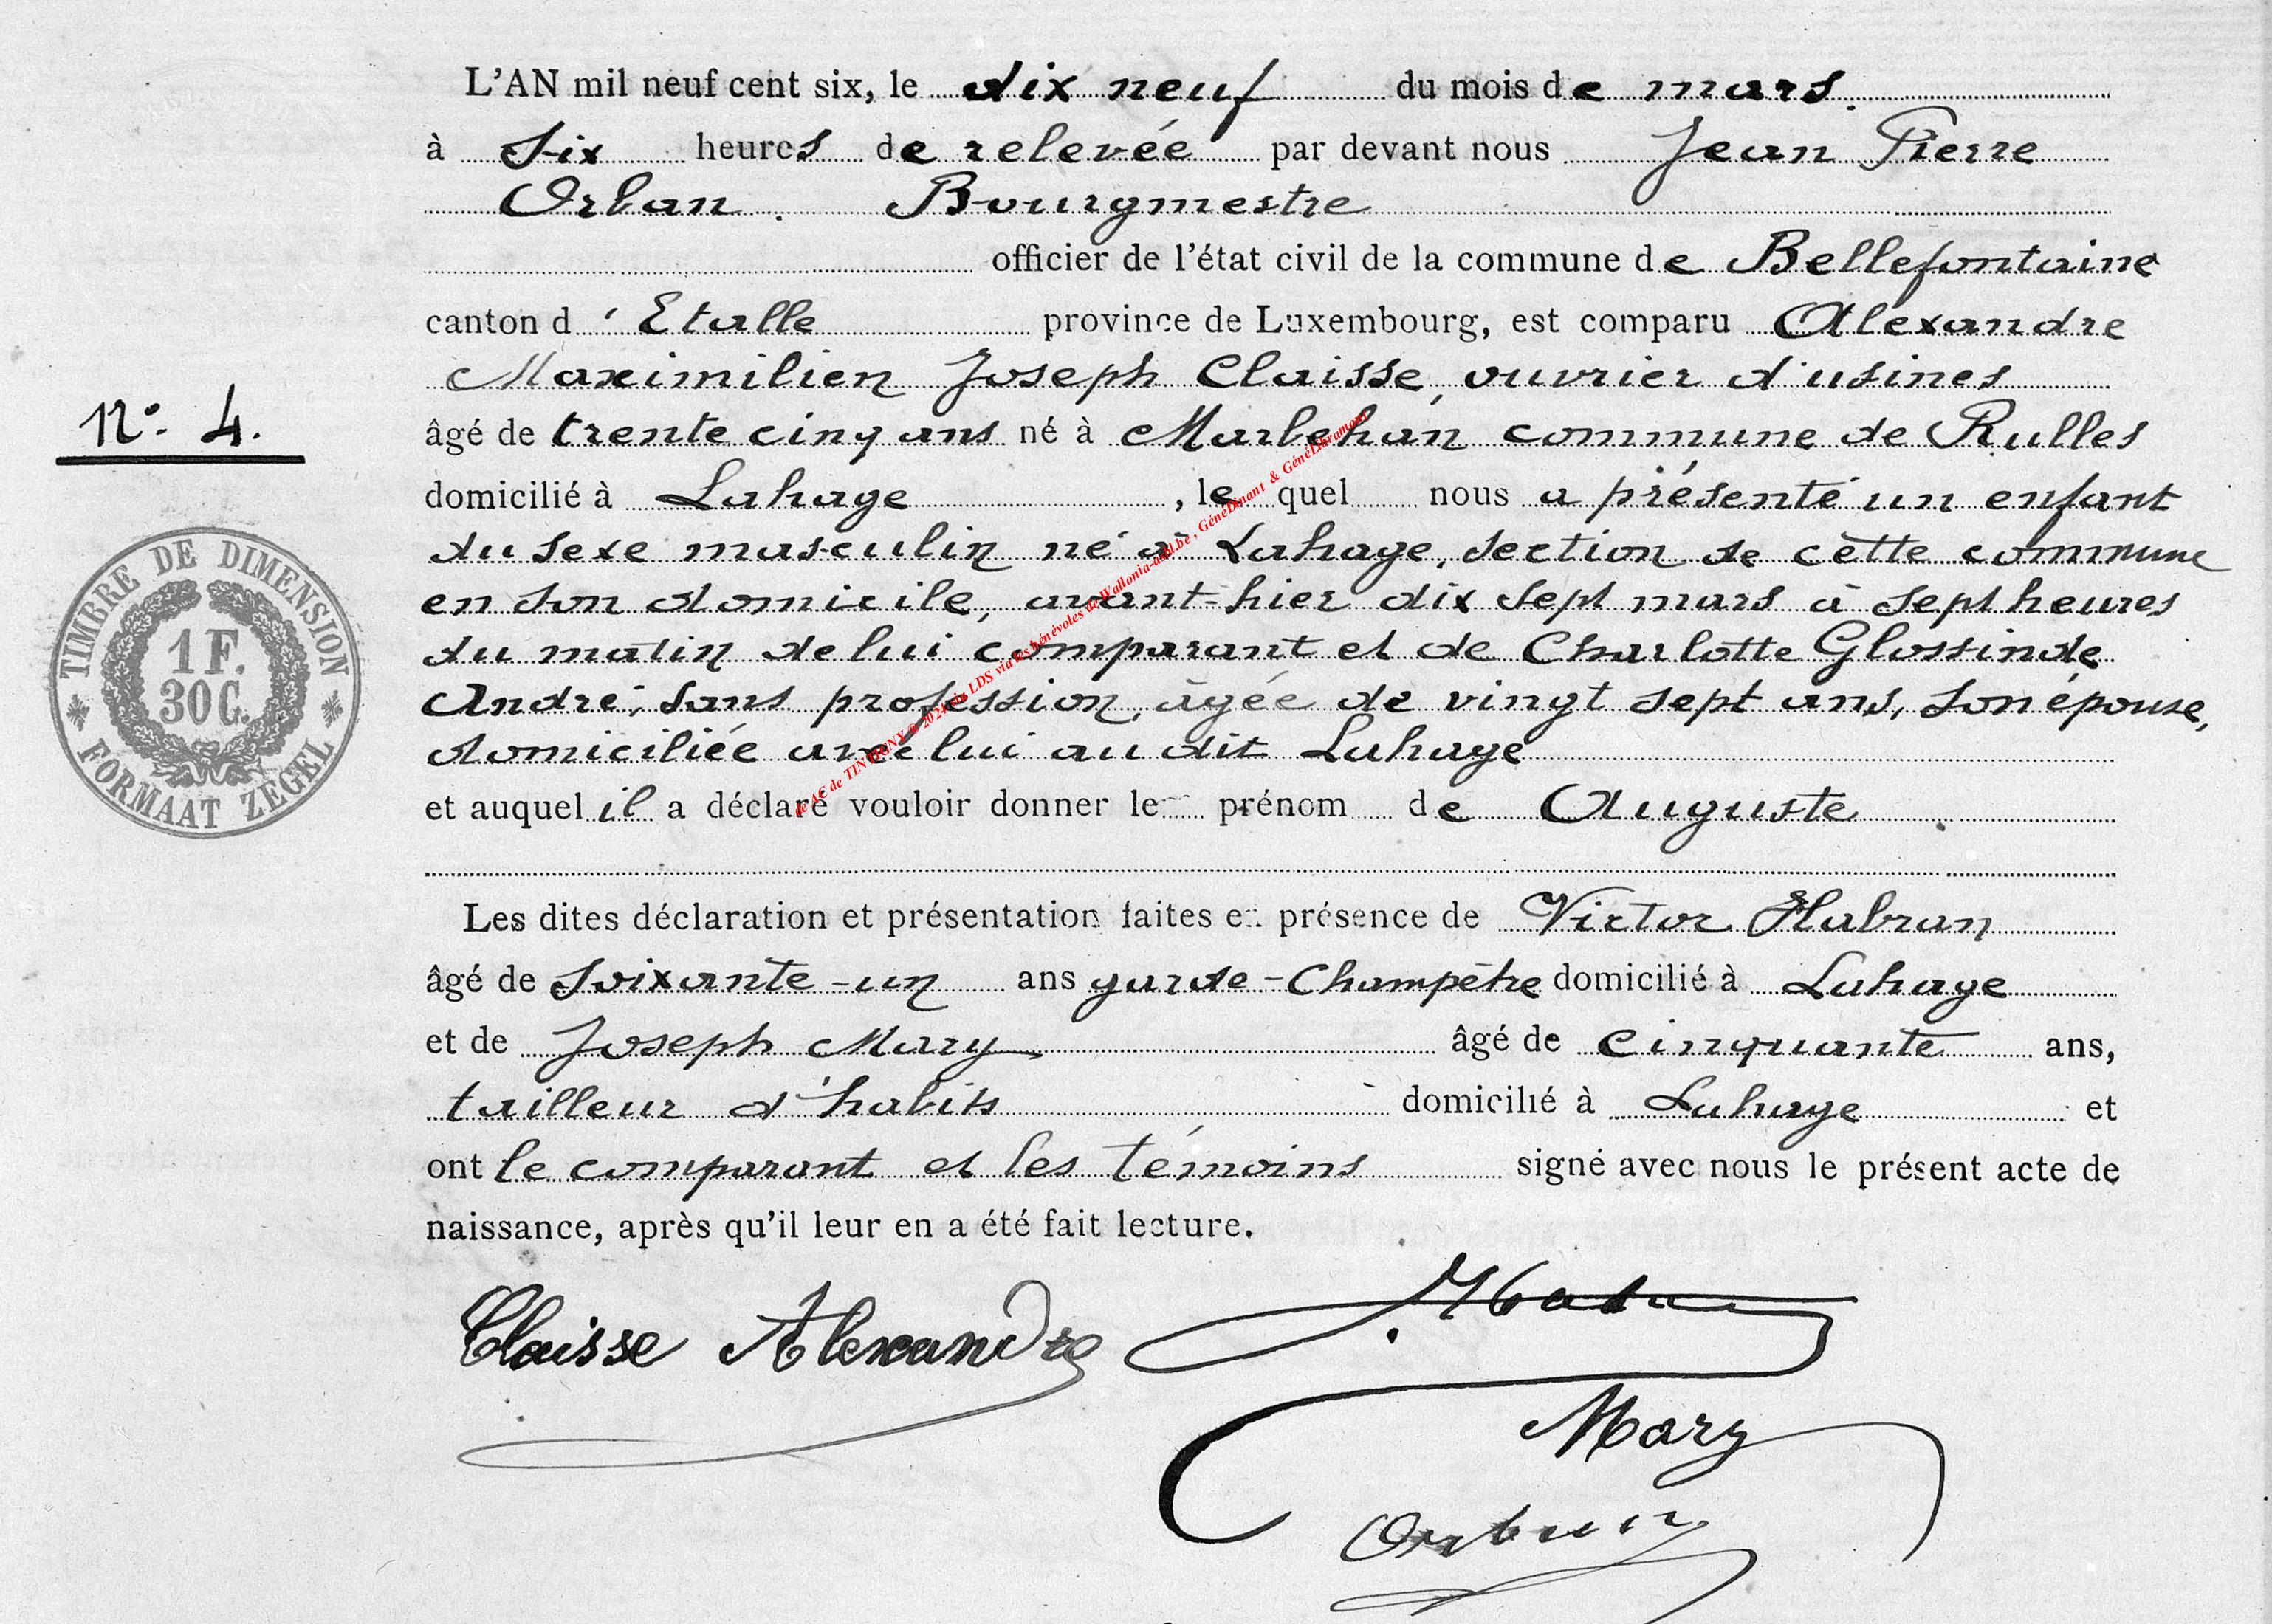 L'AN mil neuf cent six, le dix neuf du mois de mars.
à six heures de relevée par devant nous Jean Pierre
Orban. Bourgmestre
officier de l'état civil de la commune de Bellefontaine
canton d'Etalle province de Luxembourg, est comparu Alexandre
Maximilien Joseph Claisse, ouvrier d'usines
N° 4.
âgé de trente cinq ans né à Marbehan commune de Rulles
domicilié à Lahage, le quel nous a présenté un enfant
du sexe masculin né à Lahage, section de cette commune
en son domicile, avant-hier dix sept mars à sept heures
du matin de lui comparant et de Charlotte Glossinde
André, sans profession, âgée de vingt sept ans, son épouse,
domiciliée avec lui au dit Lahage
et auquel il a déclaré vouloir donner le prénom de Auguste.
TIMBRE DE DIMENSION
1 F.
30 C.
FORMAAT ZEGEL
de AC de TINTIGNY © 2024 via LDS via les bénévoles de Wallonia-asbl.be, GénéDinant & GénéLibramont
Les dites déclaration et présentation faites en présence de Victor Habran
âgé de soixante-un ans garde-Champêtre domicilié à Lahage
et de Joseph Mary âgé de cinquante ans,
tailleur d'habits domicilié à Lahage et
ont le comparant et les témoins signé avec nous le présent acte de
naissance, après qu'il leur en a été fait lecture.
Claisse Alexandre
Mary
Orban